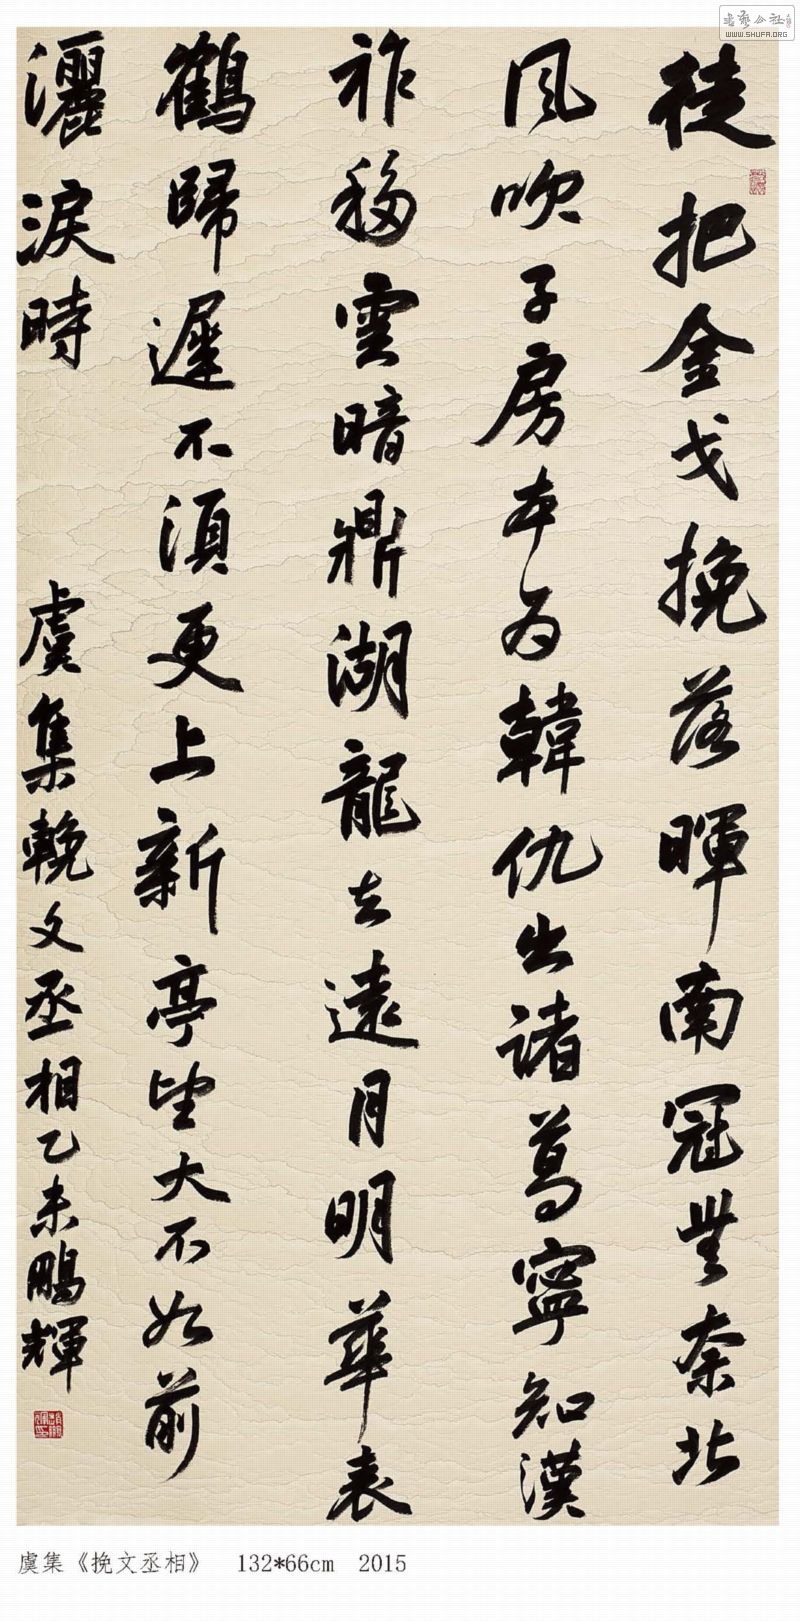 書藝公社
WWW.SHUFA.ORG
徒把金戈挽落暉南冠無奈北
風吹子房本為韓仇出諸葛寧知漢
祚移雲暗鼎湖龍去遠月明華表
鶴歸遲不須更上新亭望大不如前
灑淚時
虞集輓文丞相乙未鵬輝
虞集《挽文丞相》 132*66cm 2015